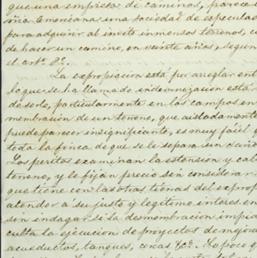 que una empresa de caminos, parece
una sociedad de especulado
para adquirir inmensos terrenos, c
de hacer un camino, en veinte años, segun
el artº 8º.
La expropiacion está por arreglar en t
lo que se ha llamado indemnizacion está
dose, particularmente en los campos en
membracion de un terreno, que aisladament
puede parecer insignificante, es muy facil q
toda la finca de que se le separa un daño
Los peritos examinan la estension y cali
terreno, y le fijan precio sin considerar
que tiene con las otras tierras del exprop
atender a su justo y legítimo interes en
sin indagar si la desmembracion impid
culta la ejecucion de proyectos de mejora
acueductos, tanques, &cª. Tampoco